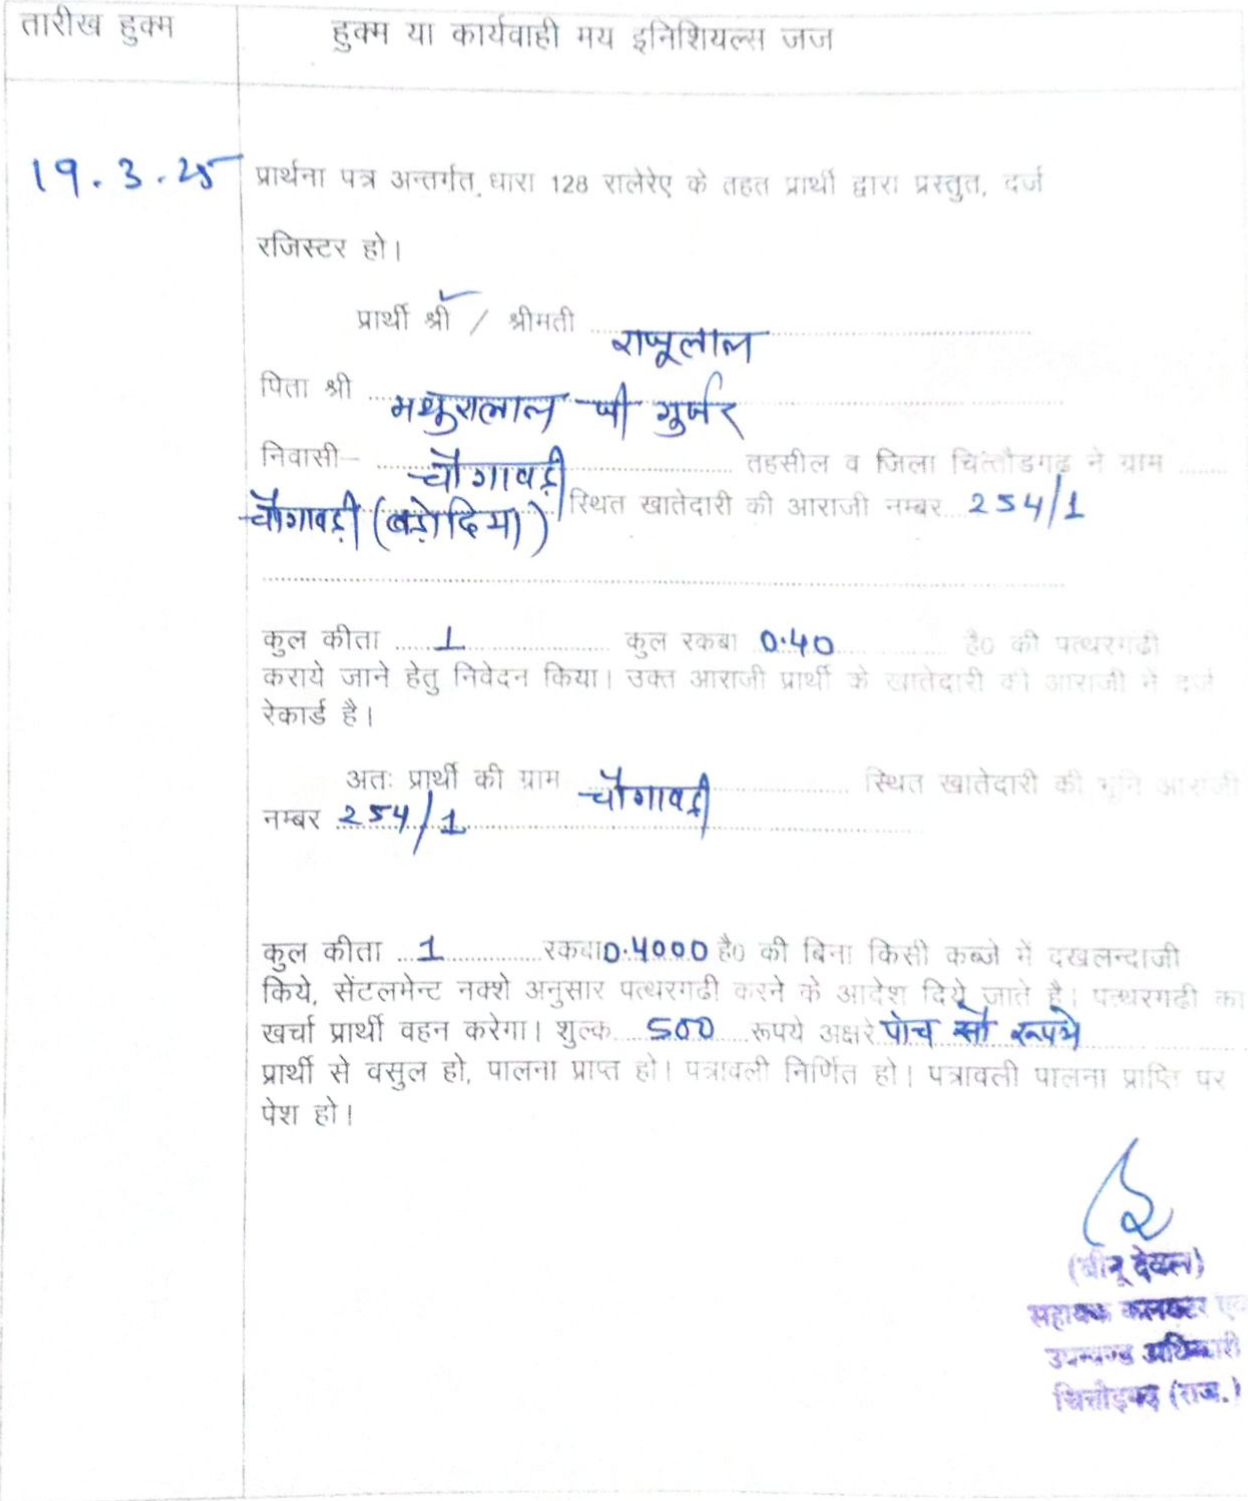 तारीख हुक्म
हुक्म या कार्यवाही मय इनिशियल्स जज
19.3.25
प्रार्थना पत्र अन्तर्गत धारा 128 रालेरेए के तहत प्रार्थी द्वारा प्रस्तुत, दर्ज
रजिस्टर हो।
प्रार्थी श्री / श्रीमती राजूलाल
पिता श्री मथुरालाल जी गुर्जर
निवासी– चौगावड़ी तहसील व जिला चित्तौडगढ़ ने ग्राम
चौगावड़ी (बड़ोदिया) स्थित खातेदारी की आराजी नम्बर 254/1
कुल कीता 1 कुल रकबा 0.40 है0 की पत्थरगढी
कराये जाने हेतु निवेदन किया। उक्त आराजी प्रार्थी के खातेदारी की आराजी में दर्ज
रेकार्ड है।
अतः प्रार्थी की ग्राम चौगावड़ी स्थित खातेदारी की भूमि आराजी
नम्बर 254/1
कुल कीता 1 रकबा 0.4000 है0 की बिना किसी कब्जे में दखलन्दाजी
किये, सेंटलमेन्ट नक्शे अनुसार पत्थरगढी करने के आदेश दिये जाते है। पत्थरगढी का
खर्चा प्रार्थी वहन करेगा। शुल्क 500 रूपये अक्षरे पांच सौ रूपये
प्रार्थी से वसुल हो, पालना प्राप्त हो। पत्रावली निर्णित हो। पत्रावली पालना प्राप्ति पर
पेश हो।
(बीनू देवल)
सहायक कलक्टर एवं
उपखण्ड अधिकारी
चित्तौड़गढ़ (राज.)